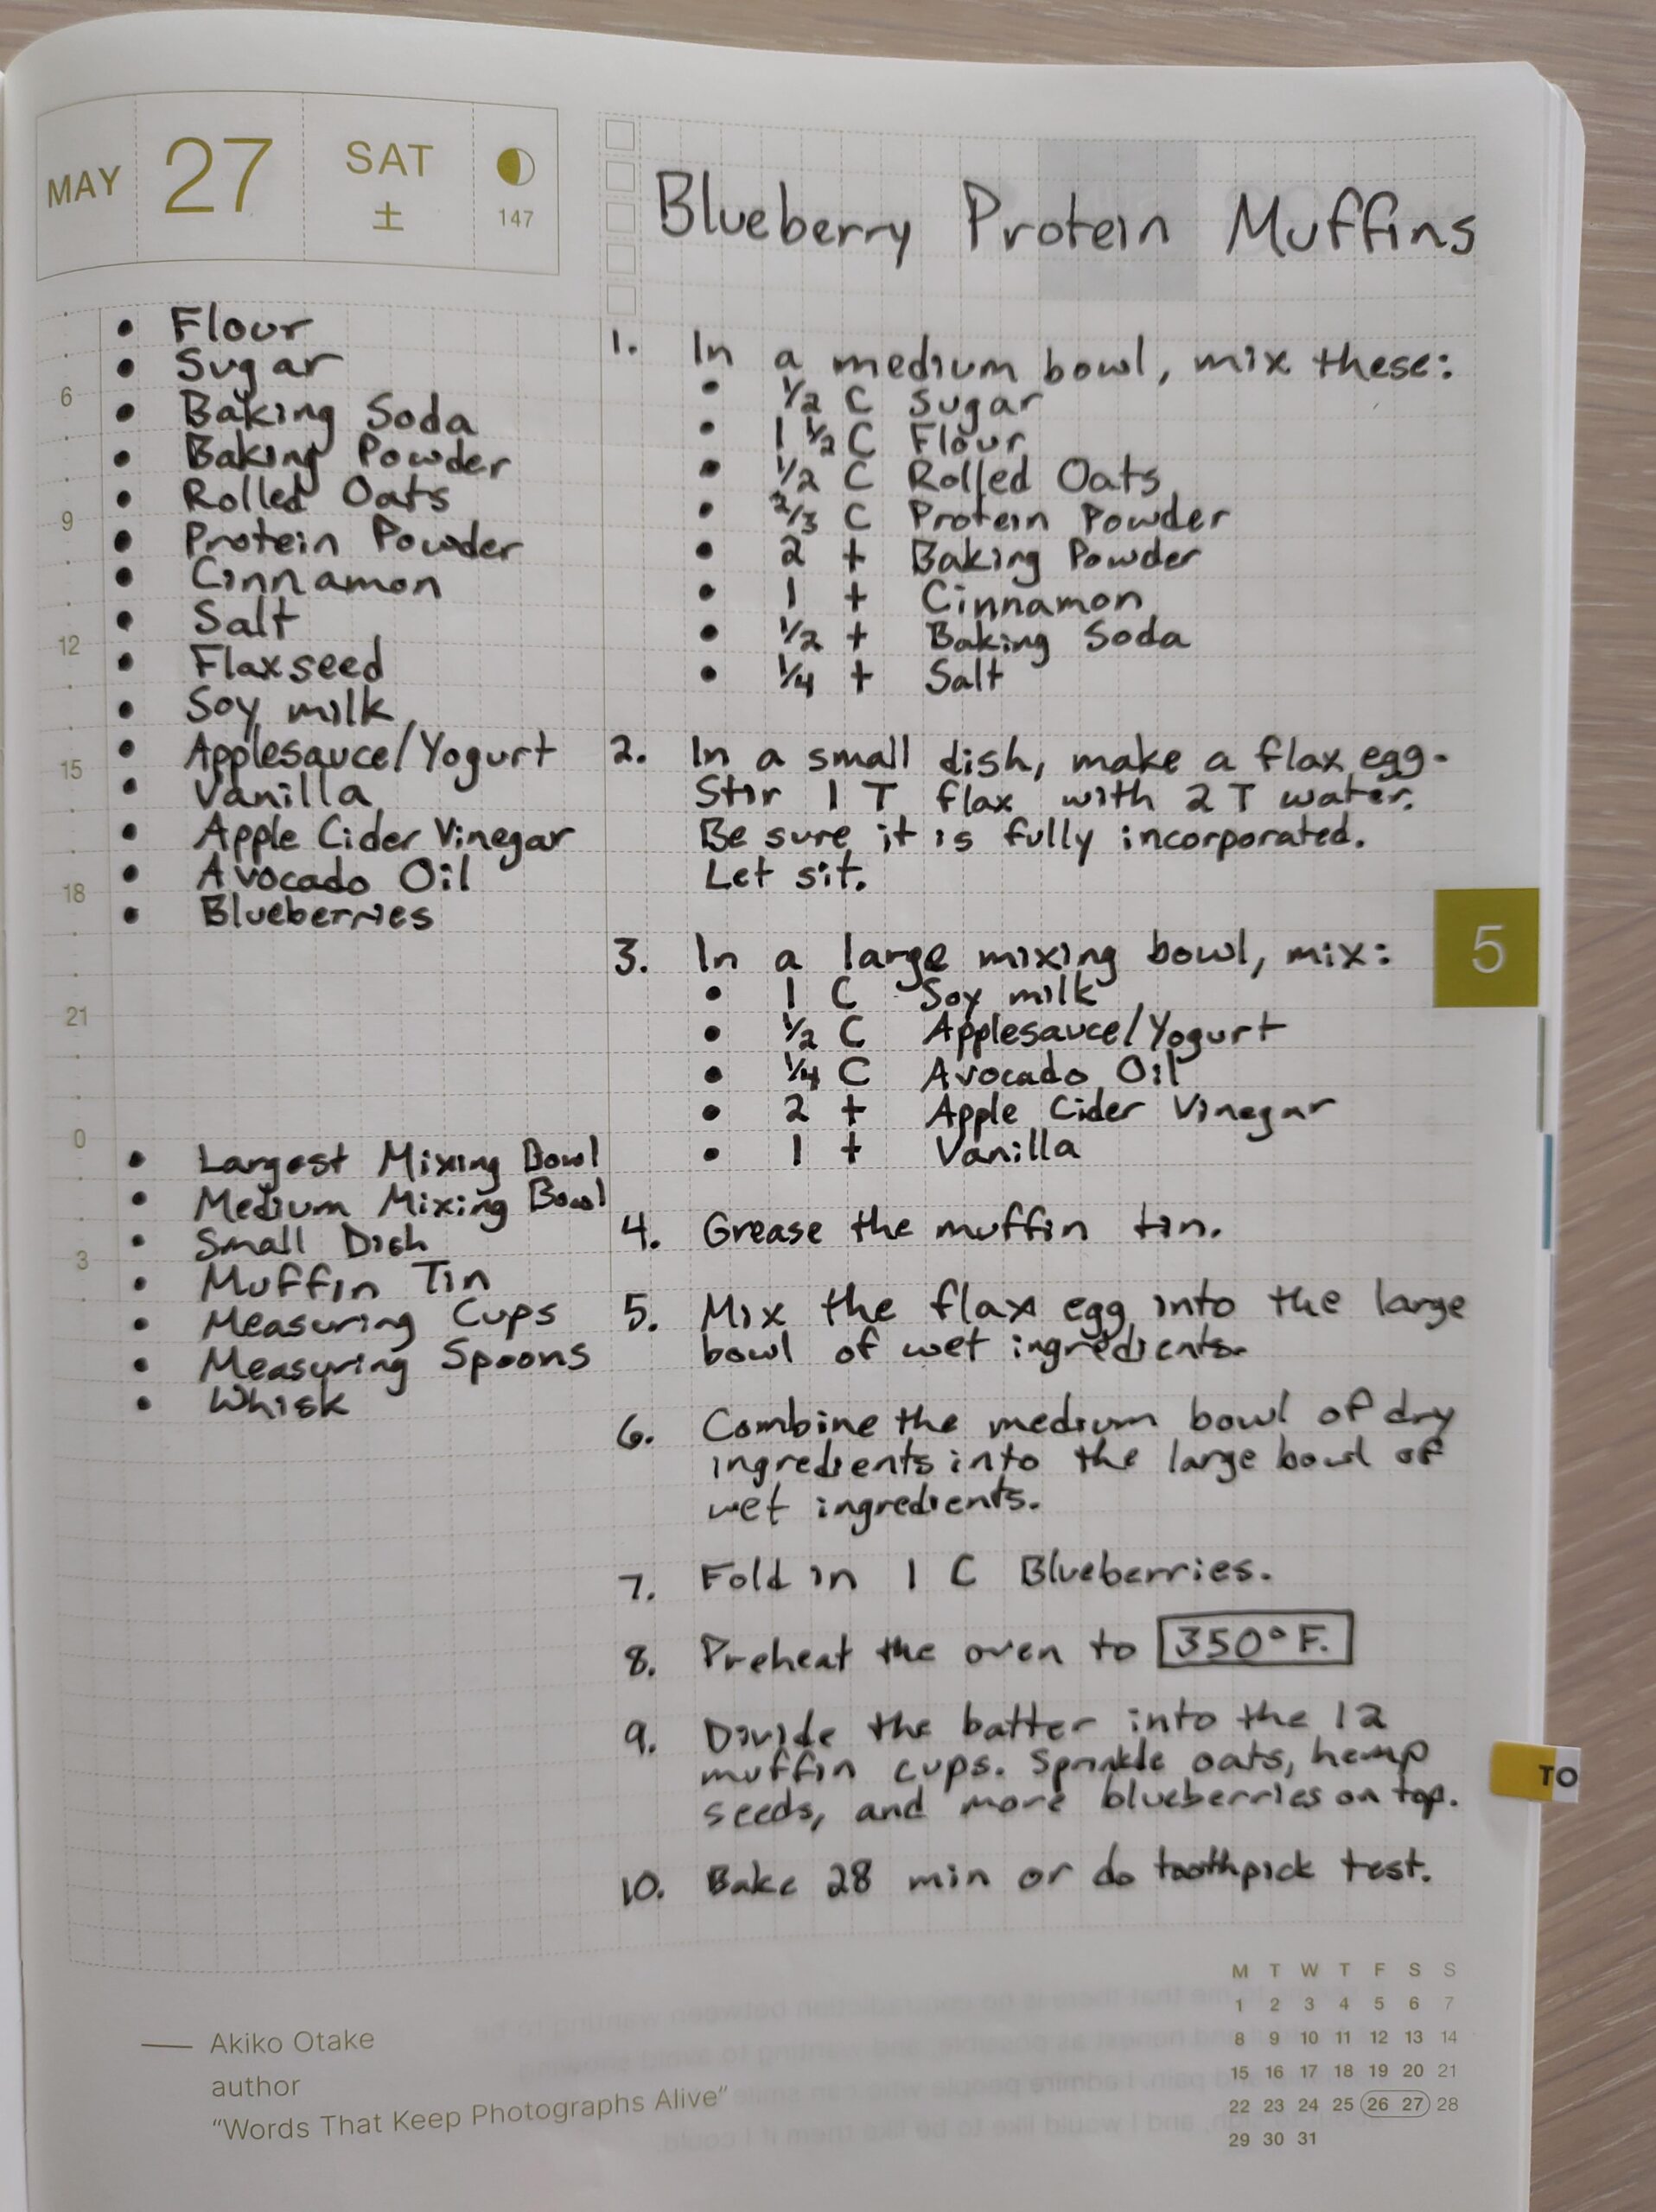 MAY 27 SAT
± 147
Blueberry Protein Muffins
• Flour
• Sugar
• Baking Soda
• Baking Powder
• Rolled Oats
• Protein Powder
• Cinnamon
• Salt
• Flaxseed
• Soy milk
• Applesauce/Yogurt
• Vanilla
• Apple Cider Vinegar
• Avocado Oil
• Blueberries
• Largest Mixing Bowl
• Medium Mixing Bowl
• Small Dish
• Muffin Tin
• Measuring Cups
• Measuring Spoons
• Whisk
6
9
12
15
18
21
0
3
1. In a medium bowl, mix these:
• 1/2 C Sugar
• 1 1/2 C Flour
• 1/2 C Rolled Oats
• 2/3 C Protein Powder
• 2 t Baking Powder
• 1 t Cinnamon
• 1/2 t Baking Soda
• 1/4 t Salt
2. In a small dish, make a flax egg.
Stir 1 T flax with 2 T water.
Be sure it is fully incorporated.
Let sit.
3. In a large mixing bowl, mix:
• 1 C Soy milk
• 1/2 C Applesauce/Yogurt
• 1/4 C Avocado Oil
• 2 t Apple Cider Vinegar
• 1 t Vanilla
4. Grease the muffin tin.
5. Mix the flax egg into the large
bowl of wet ingredients.
6. Combine the medium bowl of dry
ingredients into the large bowl of
wet ingredients.
7. Fold in 1 C Blueberries.
8. Preheat the oven to 350° F.
9. Divide the batter into the 12
muffin cups. Sprinkle oats, hemp
seeds, and more blueberries on top.
10. Bake 28 min or do toothpick test.
5
TO
— Akiko Otake
author
“Words That Keep Photographs Alive”
M T W T F S S
1 2 3 4 5 6 7
8 9 10 11 12 13 14
15 16 17 18 19 20 21
22 23 24 25 26 27 28
29 30 31